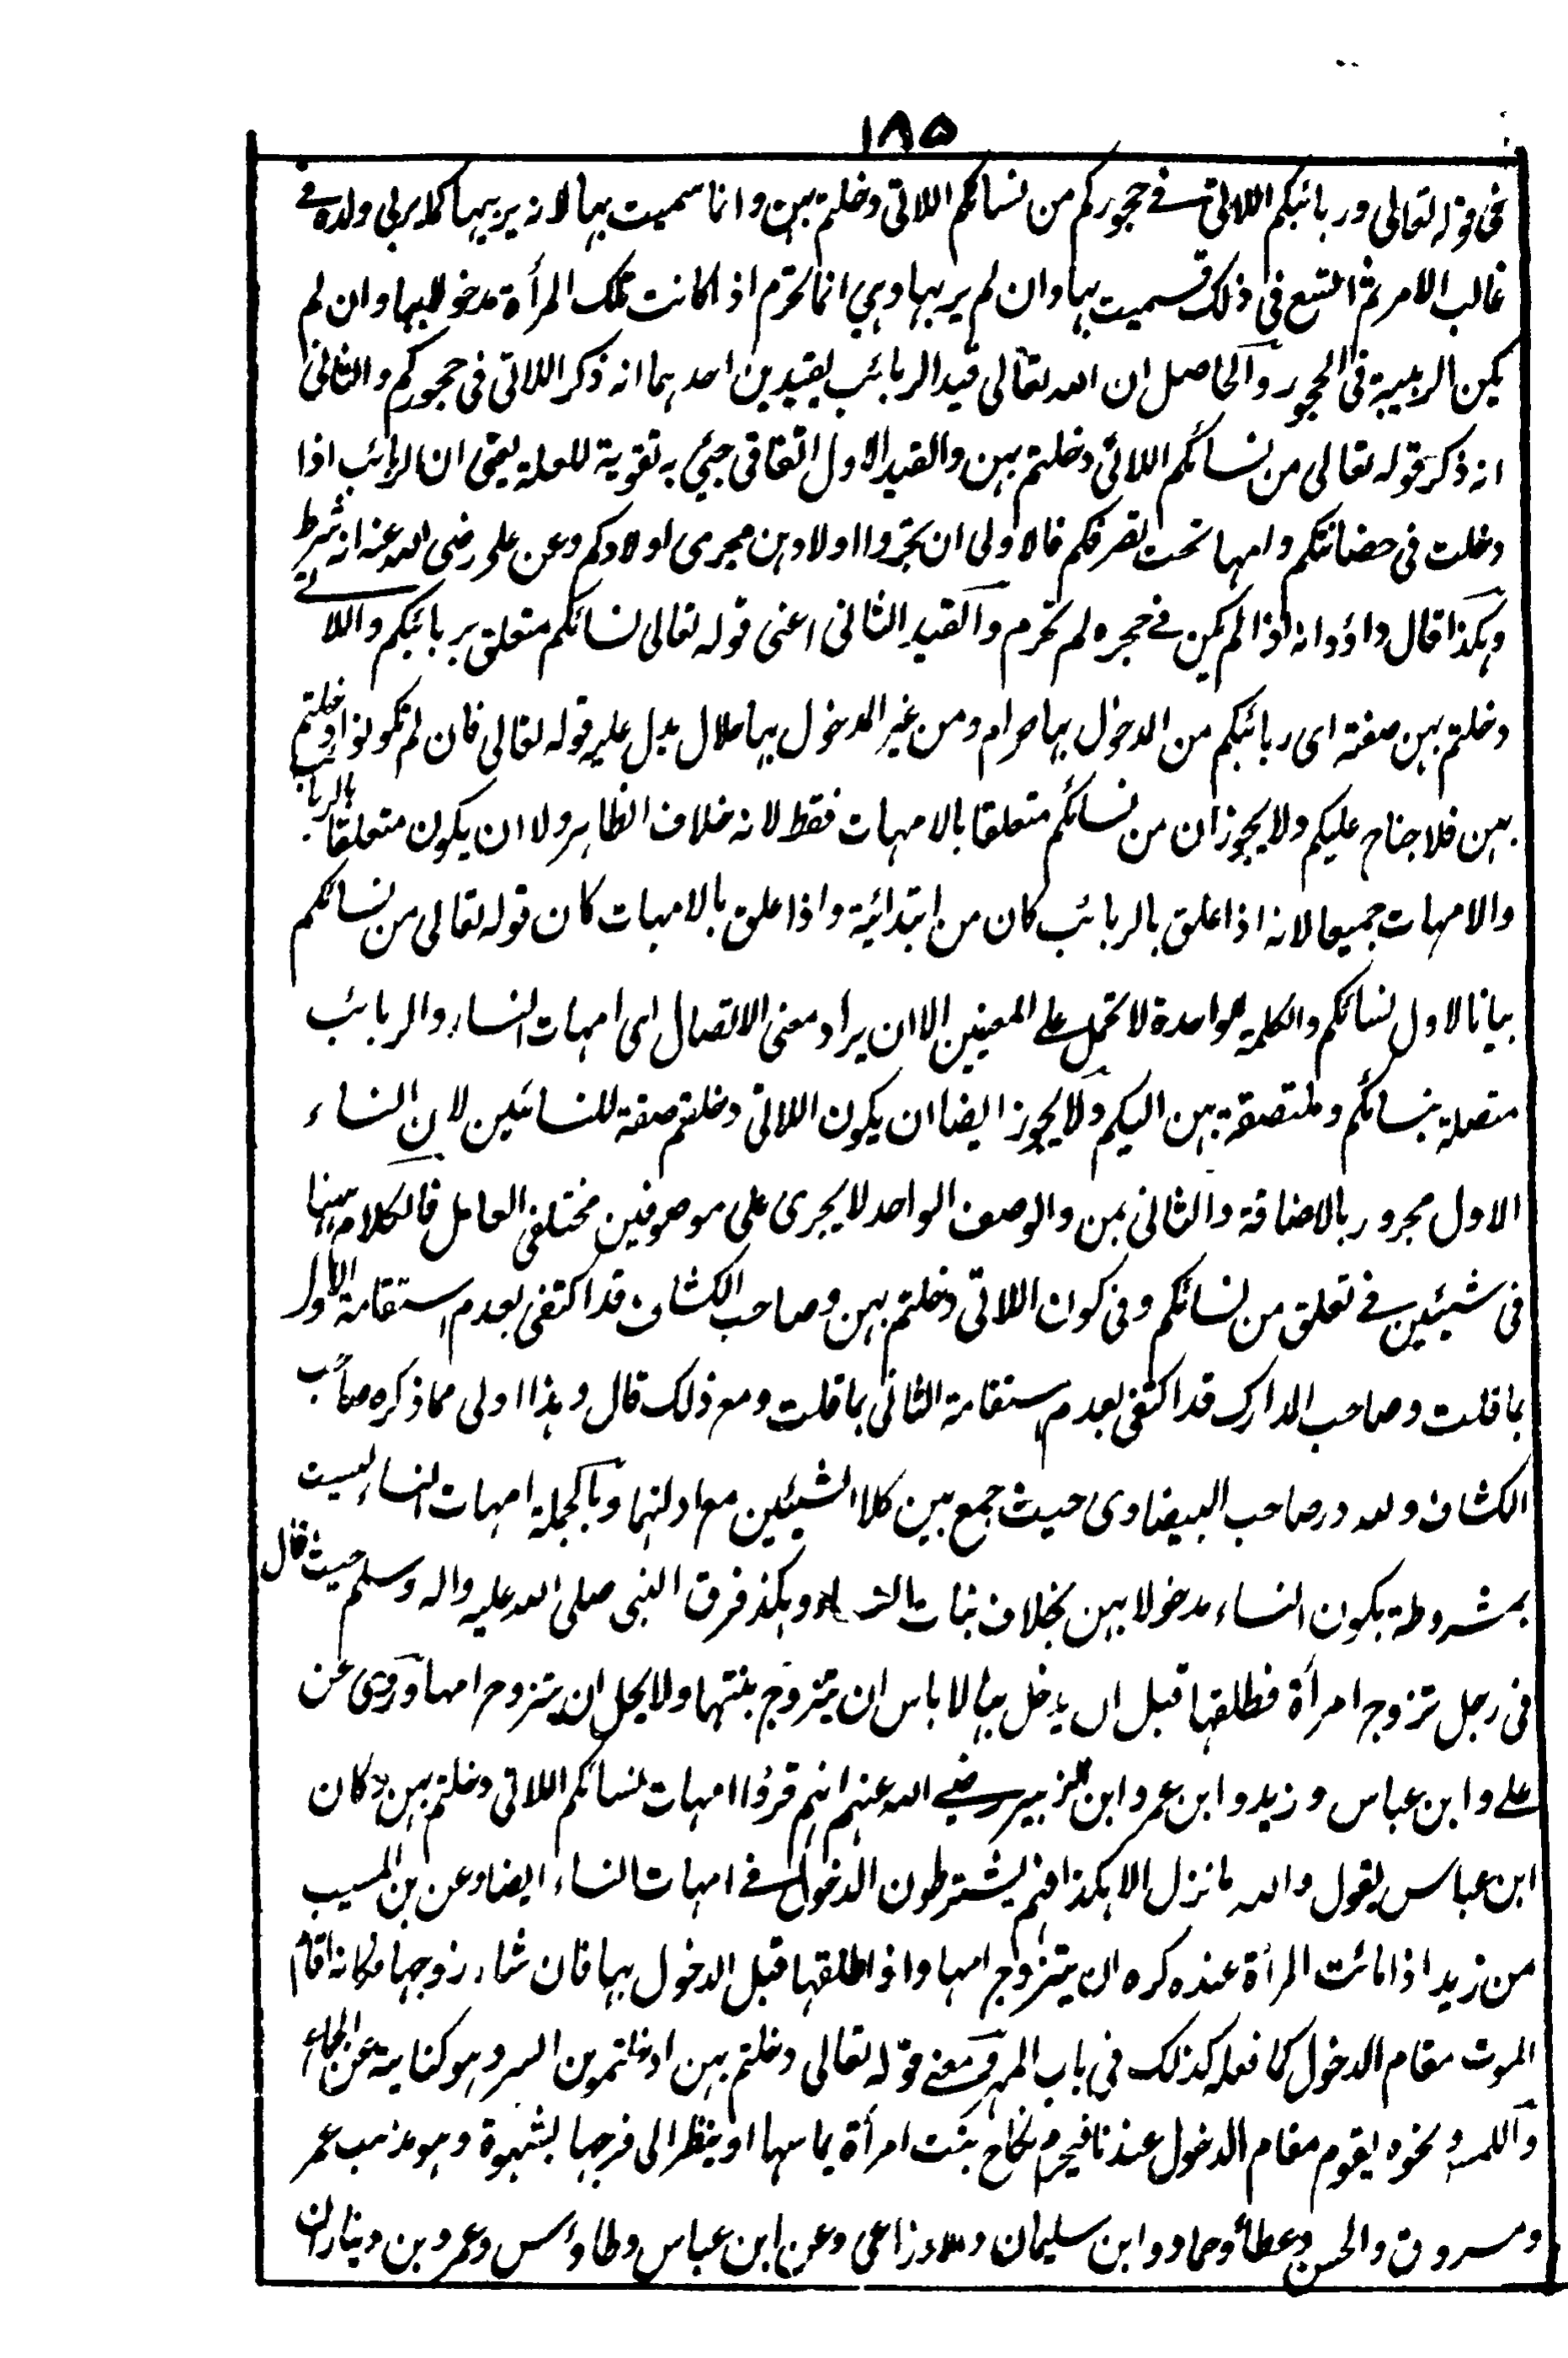 ١٨٥
فى قوله تعالى وربائبكم اللاتى فى حجوركم من نسائكم اللاتى دخلتم بهن وانما سميت بها لانه يربيها كما يربى ولده فى
غالب الامر ثم اتسع فى ذلك فسميت بها وان لم يربها وهى انما تحرم اذا كانت تلك المرأة مدخولا بها وان لم
يكن الربيبة فى الحجور والحاصل ان الله تعالى قيد الربائب بقيدين احدهما انه ذكر اللاتى فى حجوركم والثانى
انه ذكر قوله تعالى من نسائكم اللاتى دخلتم بهن والقيد الاول اتفاقى جيئ به تقوية للعلة يعنى ان الربائب اذا
دخلت فى حضانتكم وامها تحت تصرفكم فالاولى ان تجروا اولادهن مجرى اولادكم وعن على رضى الله عنه انه شرط
وهكذا قال داؤد انه اذا لم يكن فى حجره لم تحرم والقيد الثانى اعنى قوله تعالى نسائكم متعلق بربائبكم واللاتى
دخلتم بهن صفة اى ربائبكم من الدخول بها حرام ومن غير المدخول بها حلال يدل عليه قوله تعالى فان لم تكونوا دخلتم
بهن فلا جناح عليكم ولا يجوز ان من نسائكم متعلقا بالامهات فقط لانه خلاف الظاهر ولا ان يكون متعلقا بالربائب
والامهات جميعا لانه اذا علق بالربائب كان من ابتدائية واذا علق بالامهات كان قوله تعالى من نسائكم
بيانا لاول نسائكم والكلمة الواحدة لا تحمل على المعنيين الا ان يراد معنى الاتصال اى امهات النساء والربائب
متصلة بنسائكم وملتصقة بهن اليكم ولا يجوز ايضا ان يكون اللاتى دخلتم صفة للنسائين لان النساء
الاول مجرور بالاضافة والثانى بمن والوصف الواحد لا يجرى على موصوفين مختلفى العامل فالكلام ههنا
فى شيئين فى تعلق من نسائكم وفى كون اللاتى دخلتم بهن وصاحب الكشاف قد اكتفى بعدم استقامة الاول
بما قلت وصاحب المدارك قد اكتفى بعدم استقامة الثانى بما قلت ومع ذلك قال وهذا اولى مما ذكره صاحب
الكشاف ولله در صاحب البيضاوى حيث جمع بين كلا الشيئين مع ادلتهما وبالجملة امهات النساء ليست
بمشروطة بكون النساء مدخولا بهن بخلاف بنات النساء وهكذا فرق النبى صلى الله عليه واله وسلم حيث قال
فى رجل تزوج امرأة فطلقها قبل ان يدخل بها لا باس ان يتزوج بنتها ولا يحل ان يتزوج امها وروى عن
على وابن عباس وزيد وابن عمر وابن الزبير رضى الله عنهم انهم قرؤا امهات نسائكم اللاتى دخلتم بهن وكان
ابن عباس يقول والله ما نزل الا هكذا فهم يشترطون الدخول فى امهات النساء ايضا وعن بن المسيب
من زيد اذا ماتت المرأة عنده كره ان يتزوج امها واذا طلقها قبل الدخول بها فان شاء زوجها فكانه اقام
الموت مقام الدخول كما فعله كذلك فى باب المهر ومعنى قوله تعالى دخلتم بهن ادخلتموهن الستر وهو كناية عن الجماع
واللمس ونحوه يقوم مقام الدخول عندنا فيحرم نكاح بنت امرأة يماسها او ينظر الى فرجها بشهوة وهو مذهب عمر
ومسروق والحسن وعطاء وحماد وابن سليمان والاوزاعى وعن ابن عباس وطاوس وعمرو بن دينار ان